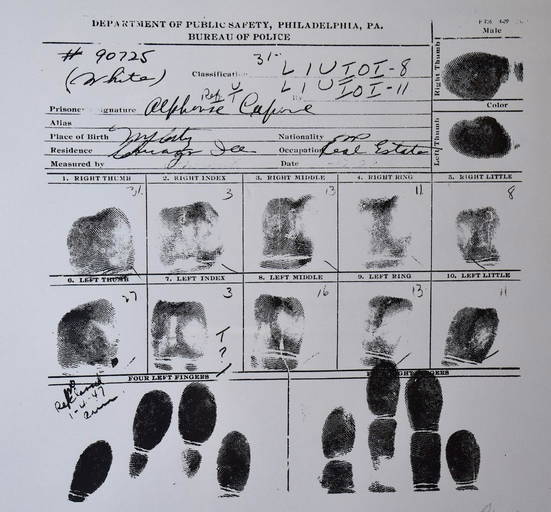 DEPARTMENT OF PUBLIC SAFETY, PHILADELPHIA, PA.
BUREAU OF POLICE
Male
# 90725
(White)
31-
Classification L 1 U IOI-8
Ref. U L 1 U IOI-11
Right Thumb
Prisoner Signature Alphonse Capone
Color
Alias
Place of Birth NY City Nationality
Residence Chicago Ill Occupation Real Estate
Left Thumb
Measured by Date
1. RIGHT THUMB 2. RIGHT INDEX 3. RIGHT MIDDLE 4. RIGHT RING 5. RIGHT LITTLE
31 3 13 11 8
6. LEFT THUMB 7. LEFT INDEX 8. LEFT MIDDLE 9. LEFT RING 10. LEFT LITTLE
27 3 16 13 11
T
?
FOUR LEFT FINGERS
1-4-47